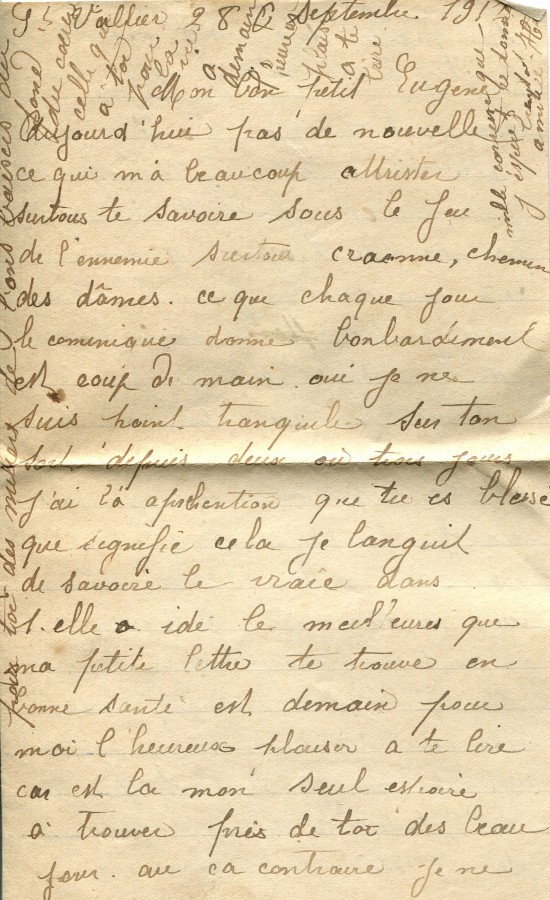 St Vallier 28 Septembre 191
Mon bon petit Eugène
aujourd'hui pas de nouvelle
ce qui m'a beaucoup attrister
surtous te savoire sous le feu
de l'ennemie surtous craonne, chemin
des dâmes. ce que chaque jour
le cominique donne bonbardement
est coup di main oui je ne
suis point tranquile sur ton
sort depuis deux ou trois jours
j'ai l'a aprhention que tu es blessé
que signifie cela je languit
de savoire le vraie dans
l. elle a idé le meuil'eures que
ma petite lettre te trouve en
bonne santé est demain pour
moi l'heureux plaisir a te lire
car est la mon seul espoire
a trouver près de toi des beau
jour. au ca contraire je ne
pour toi des milliers de bons baisers
du coeur
celle qui
a toi
pour
la
vie
a
demain
a te
lire
mille
j'espère